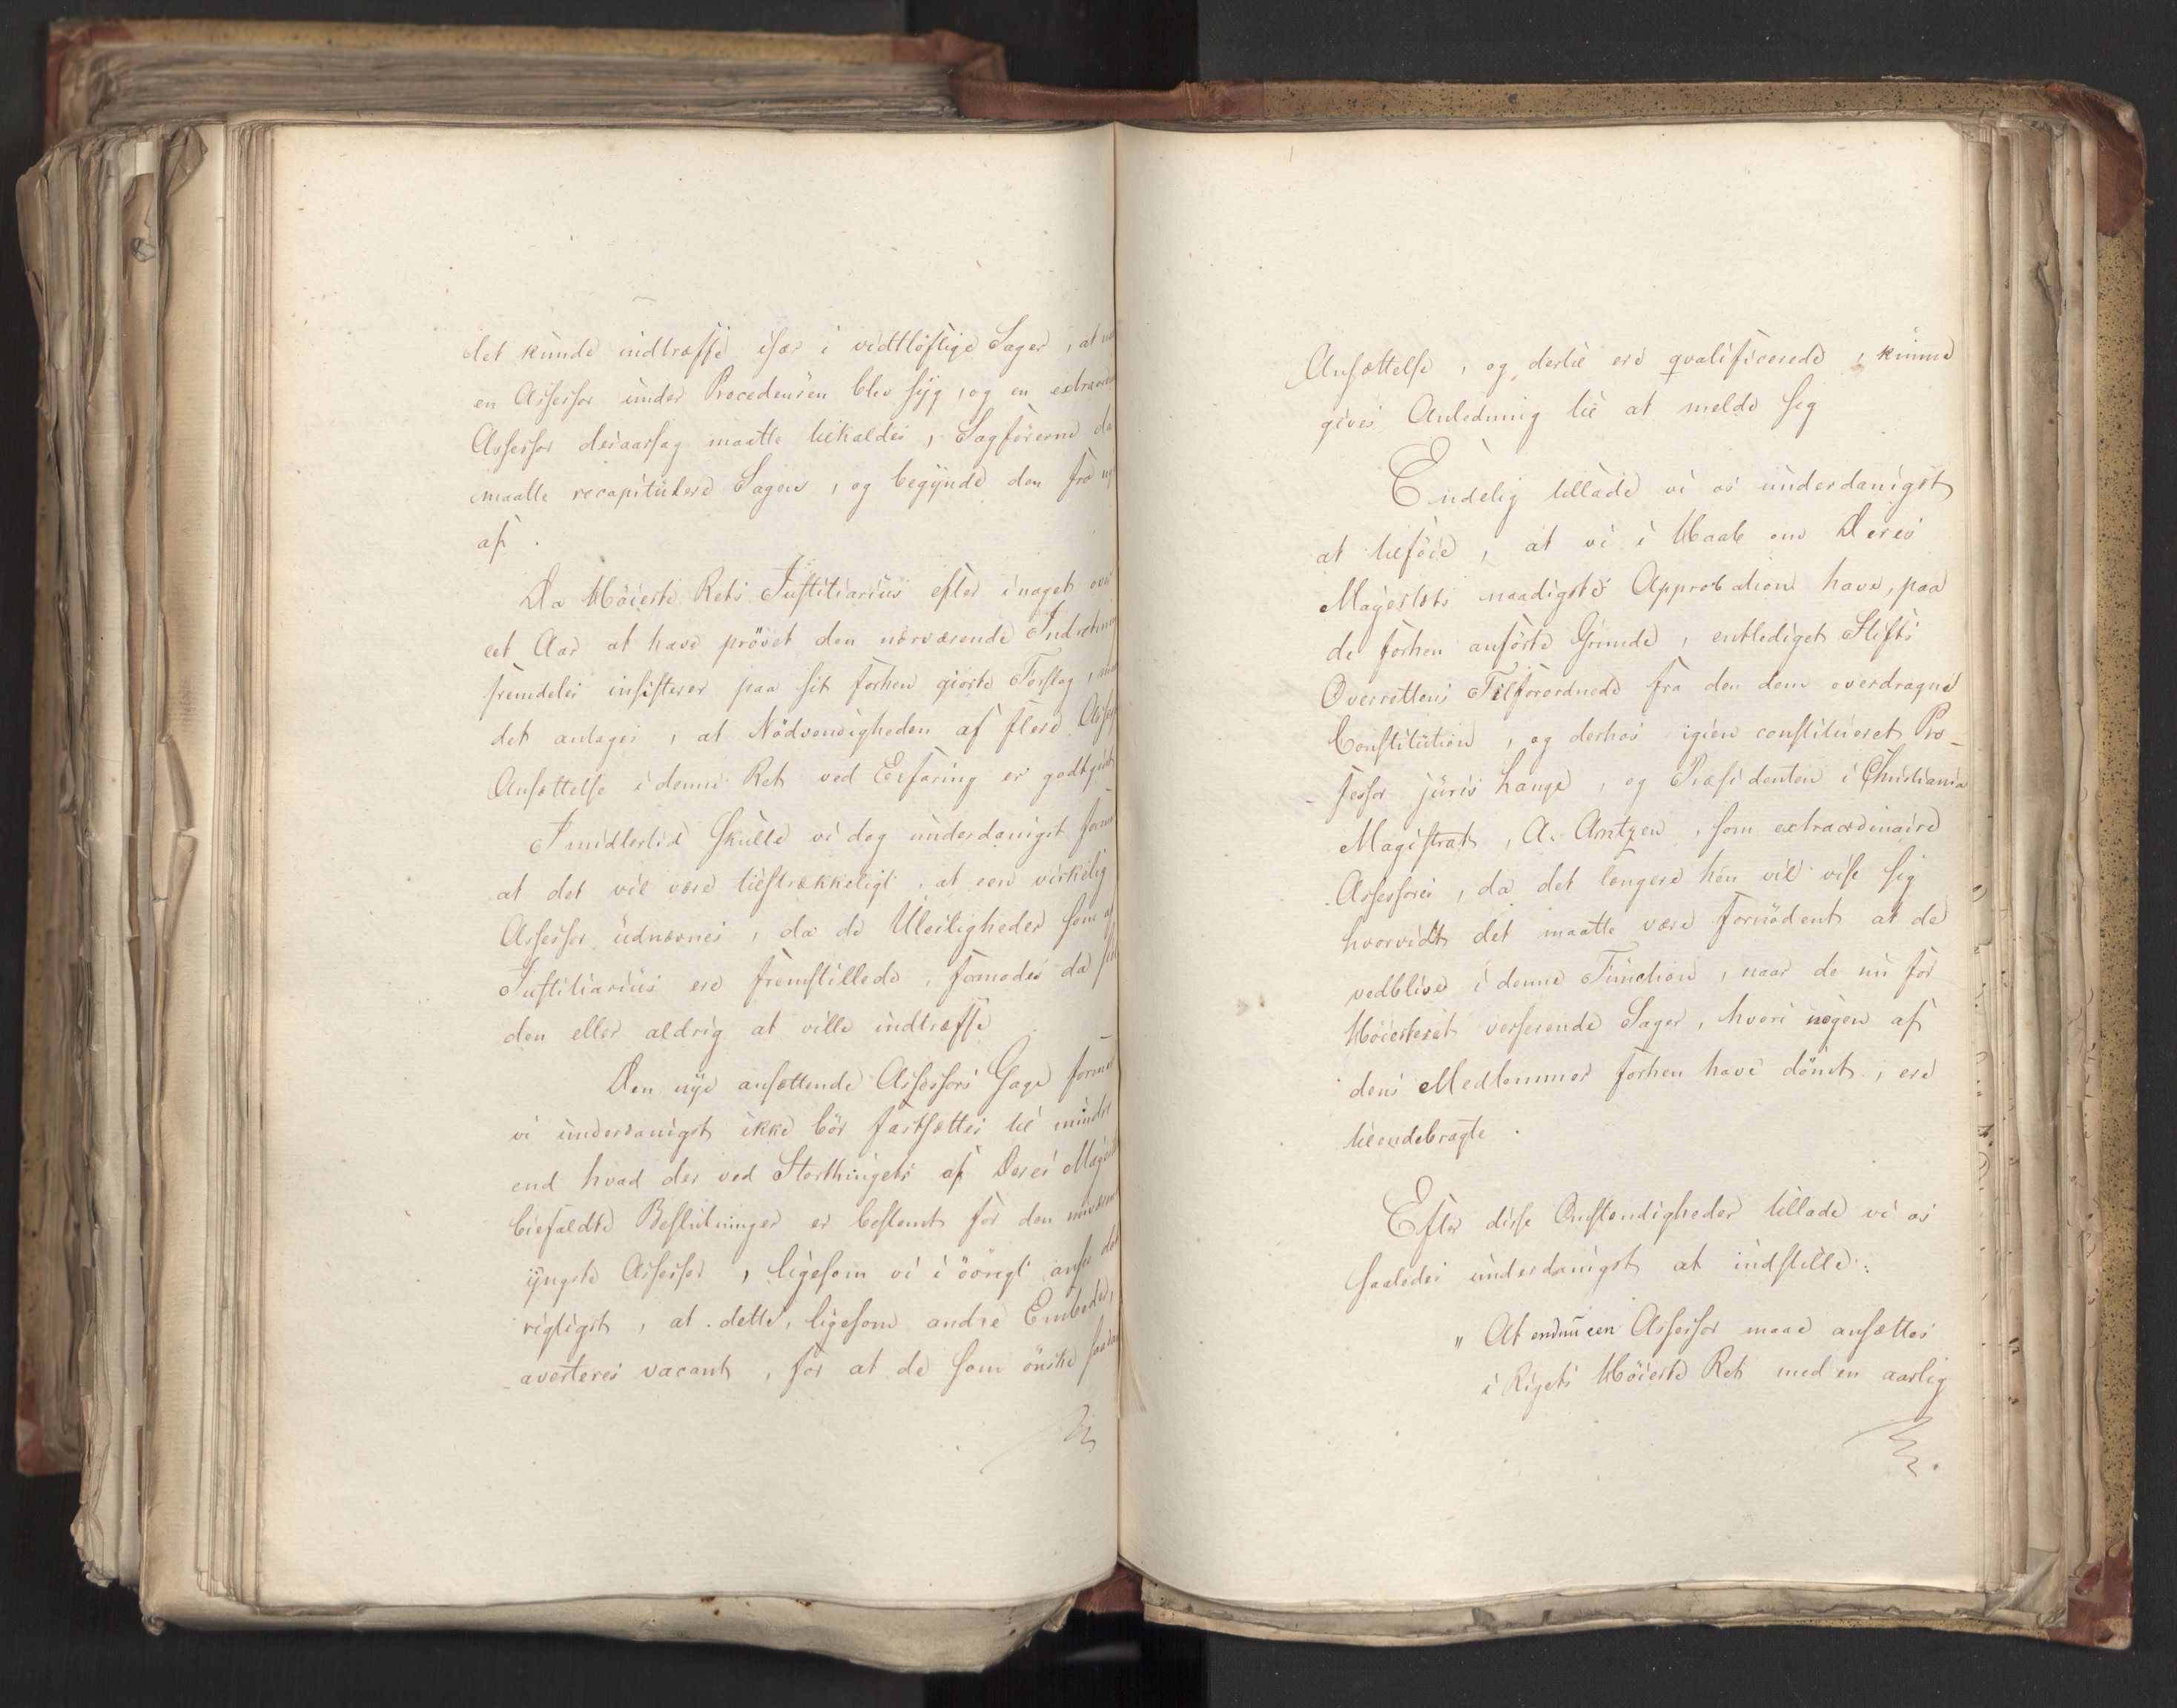 det kunde indtræffe især i vidtløftige Sager, at
en Assessor under Proceduren blev syg, og en
Assessor desaarsag maatte tilkaldes, Sagførerne da
maatte recapitulere Sagen, og begynde den fra
af.
Da Høieste Rets Justitiarius efter i noget
eet Aar at have prøvet den nærværende
fremdeles insisterer paa sit forhen giorte Forslag,
det antages, at Nødvendigheden af flere
Ansættelse i denne Ret ved Erfaring er
Imidlertid skulle vi dog underdanigst
at det vil være tilstrækkeligt, at een virkelig
Assessor udnævnes, da de Uleiligheder som
Justitiarius ere fremstillede, formodes da
den eller aldrig at ville indtræffe
Den nye ansættende Assessors Gage
vi underdanigst ikke bör fastsættes til mindre
end hvad der ved Storthingets af Deres
biefaldte Beslutninger er bestemt for den
yngste Assessor, ligesom vi i övrigt ansee det
rigtigst, at dette, ligesom andre Embeder,
averteres vacant, for at de som önske
Ansættelse, og dertil ere qvalificerede, kunne
gives Anledning til at melde sig
Endelig tillade vi os underdanigst
at tilföie, at vi i Haab om Deres
Majestets naadigste Approbation have, paa
de forhen anförte Grunde, entlediget Stifts
Overrettens Tilforordnede fra den dem overdragne
Constitution, og derhos igien constitueret Pro-
-fessor juris Hauge, og Præsidenten i Christiania
Magistrat, A. Arntzen, som extraordinaire
Assessorer, da det længere hen vil vise sig
hvorvidt det maatte være fornödent at de
vedblive i denne Function, naar de nu for
Höiesteret verserende Sager, hvori nogen af
dens Medlemmer forhen have dömt, ere
tilendebragte.
Efter disse Omstendigheder tillade vi os
saaledes underdanigst at indstille:
"At endnu een Assessor maae ansættes
i Rigets Höieste Ret med en aarlig